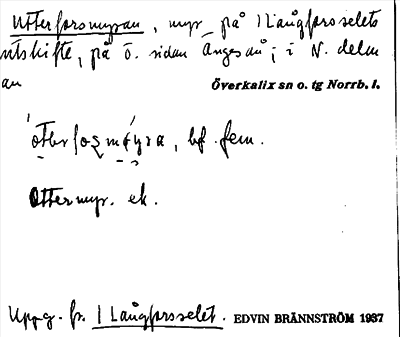 Utterforsmyran, myr, på 1 Långforsselets
utskifte, på ö. sidan Ängesån; i N. delen
av Överkalix sn o. tg Norrb. l.
bf. fem.
Ottermyr. ek.
Uppg. fr. 1 Långforsselet. EDVIN BRÄNNSTRÖM 1937